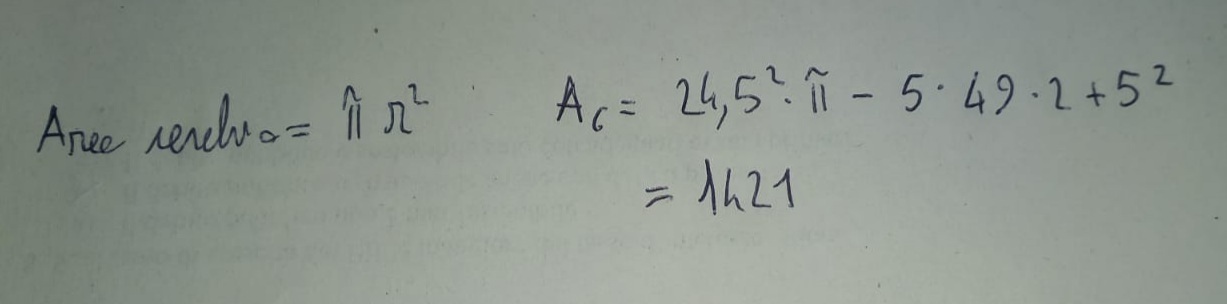 Area cerchio = π r² A_c = 24,5² · π - 5 · 49 · 2 + 5²
= 1421